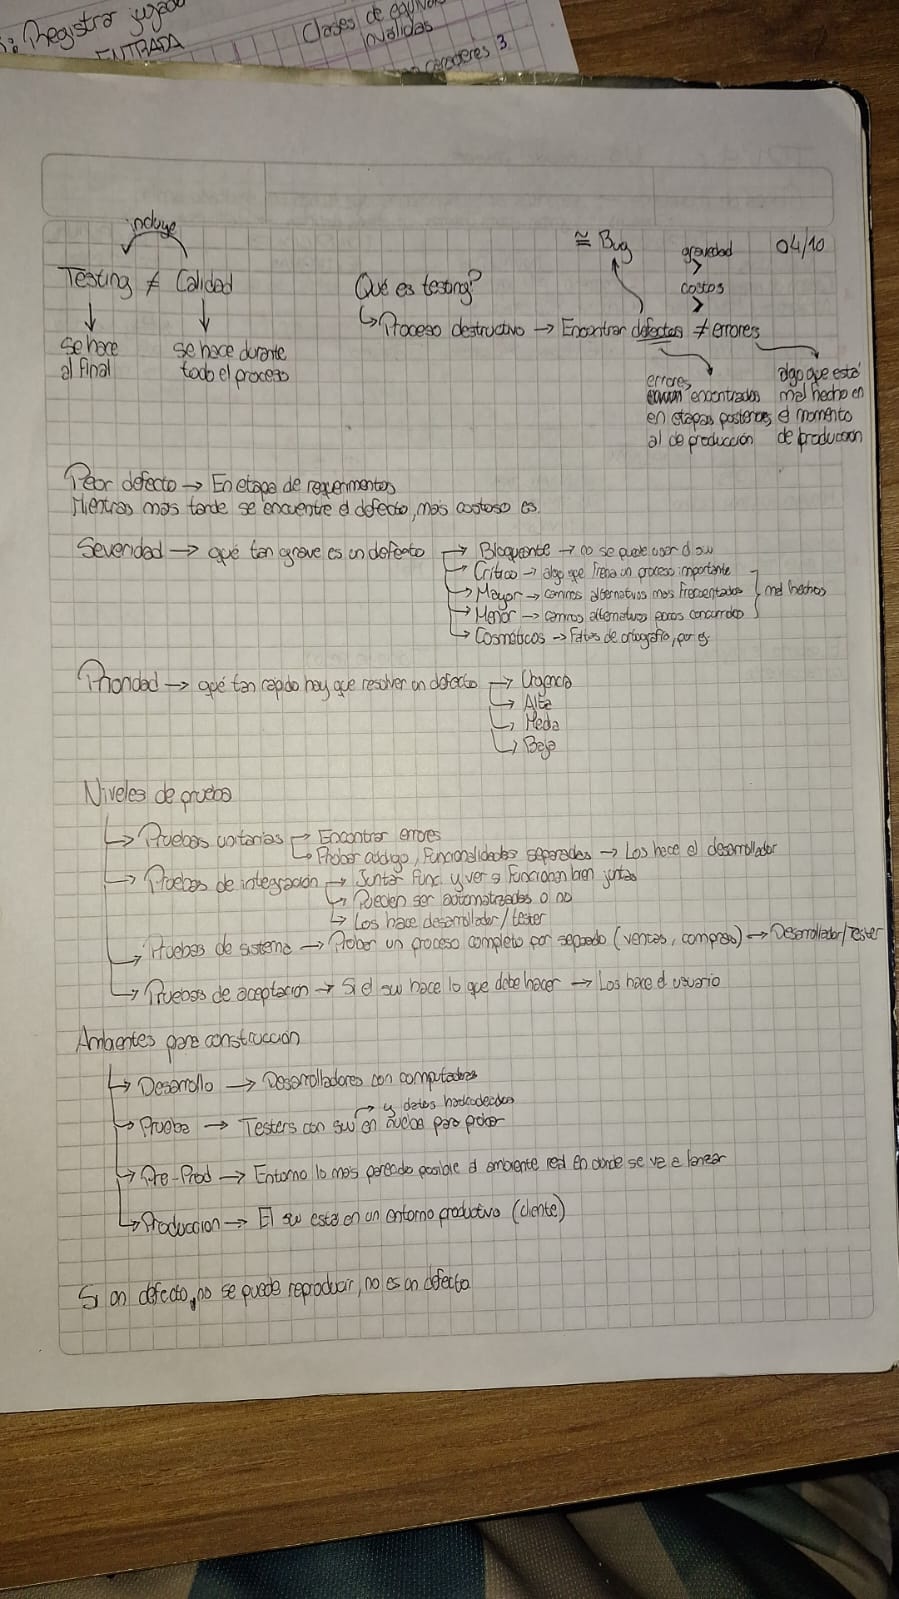 Registrar jugado
ENTRADA
Clases de equiv
inválidas
caracteres 3
04/10
incluye
Testing ≠ Calidad
se hace al final
se hace durante todo el proceso
Qué es testing?
↳ Proceso destructivo → Encontrar defectos ≠ errores
≅ Bug
gravedad
>
costos
>
errores encontrados en etapas posteriores al de producción
algo que está mal hecho en el momento de produccion
Peor defecto → En etapa de requerimentos
Mientras más tarde se encuentre el defecto, más costoso es.
Severidad → qué tan grave es un defecto
→ Bloqueante → no se puede usar el sw
→ Crítico → algo que frena un proceso importante
→ Mayor → caminos alternativos mas frecuentados
→ Menor → caminos alternativos pocos concurridos
mal hechos
→ Cosméticos → Faltas de ortografía, por ej
Prioridad → qué tan rápido hay que resolver un defecto
→ Urgencia
→ Alta
→ Media
→ Baja
Niveles de prueba
→ Pruebas unitarias → Encontrar errores
↳ Probar código, funcionalidades separadas → Los hace el desarrollador
→ Pruebas de integración → Juntar func. y ver si funcionan bien juntas
↳ Pueden ser automatizadas o no
↳ Los hace desarrollador/tester
→ Pruebas de sistema → Probar un proceso completo por separado (ventas, compras) → Desarrollador/Tester
→ Pruebas de aceptacion → Si el sw hace lo que debe hacer → Los hace el usuario
Ambientes para construcción
→ Desarrollo → Desarrolladores con computadoras
→ y datos hardcodeados
→ Prueba → Testers con sw en para probar
→ Pre-Prod → Entorno lo más parecido posible al ambiente real en donde se va a lanzar
→ Produccion → El sw está en un entorno productivo (cliente)
Si un defecto, no se puede reproducir, no es un defecto